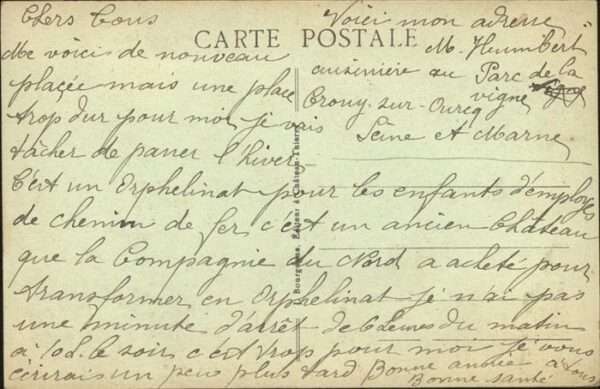 Chers Tous
Me voici de nouveau
placée mais une place
trop dur pour moi, je vais
tâcher de passer l'hiver
C'est un Orphelinat pour les enfants d'employés
de chemin de fer c'est un ancien Château
que la Compagnie du Nord a acheté pour
transformer en Orphelinat je n'ai pas
une minute d'arrêt de 6 heures du matin
à 10 h. le soir c'est trop pour moi je vous
écrirais un peu plus tard Bonne année à tous
Bonne santé
CARTE POSTALE
Voici mon adresse
M. Humbert
cuisinière au Parc de la
vigne
Crouy-sur-Ourcq
Seine et Marne
Bourgogne, Editeur à Château-Thierry